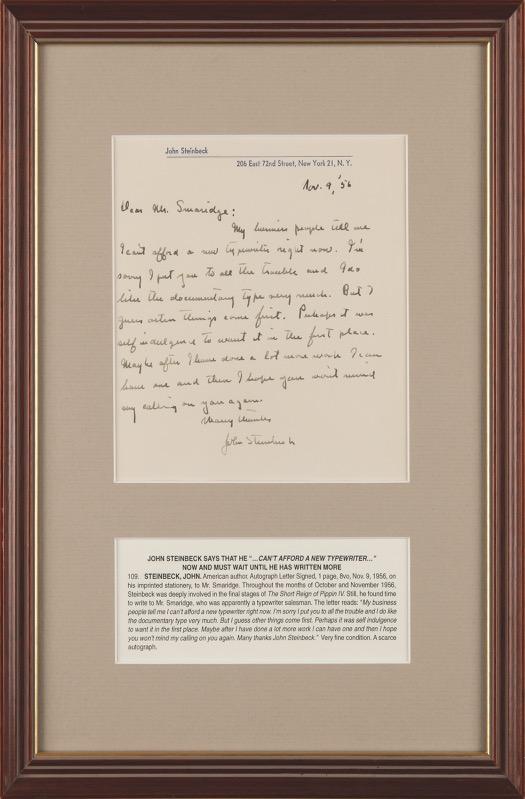 John Steinbeck
206 East 72nd Street, New York 21, N. Y.
Nov. 9, '56
Dear Mr. Smaridge:
My business people tell me
I can't afford a new typewriter right now. I'm
sorry I put you to all the trouble and I do
like the documentary type very much. But I
guess other things come first. Perhaps it was
self indulgence to want it in the first place.
Maybe after I have done a lot more work I can
have one and then I hope you won't mind
my calling on you again.
Many thanks
John Steinbeck
JOHN STEINBECK SAYS THAT HE "...CAN'T AFFORD A NEW TYPEWRITER..."
NOW AND MUST WAIT UNTIL HE HAS WRITTEN MORE
109. STEINBECK, JOHN. American author. Autograph Letter Signed, 1 page, 8vo, Nov. 9, 1956, on
his imprinted stationery, to Mr. Smaridge. Throughout the months of October and November 1956,
Steinbeck was deeply involved in the final stages of The Short Reign of Pippin IV. Still, he found time
to write to Mr. Smaridge, who was apparently a typewriter salesman. The letter reads: "My business
people tell me I can't afford a new typewriter right now. I'm sorry I put you to all the trouble and I do like
the documentary type very much. But I guess other things come first. Perhaps it was self indulgence
to want it in the first place. Maybe after I have done a lot more work I can have one and then I hope
you won't mind my calling on you again. Many thanks John Steinbeck." Very fine condition. A scarce
autograph.